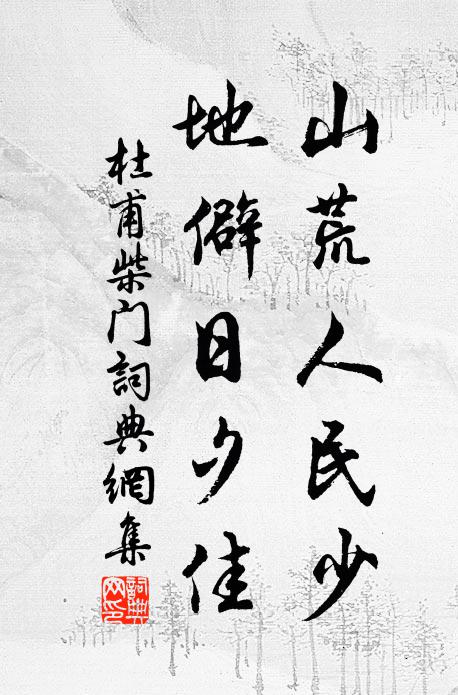 山荒人民少
地僻日夕佳
杜甫柴門詞典網集
詞典网印